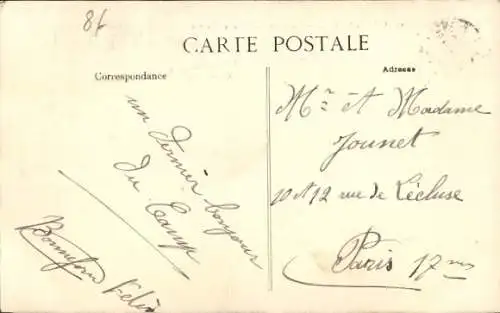 86
CARTE POSTALE
Correspondance
Adresse
un dernier bonjour
du Camp
Bonnefon Félix
Mr et Madame
Jounet
10 et 12 rue de Lécluse
Paris 17me